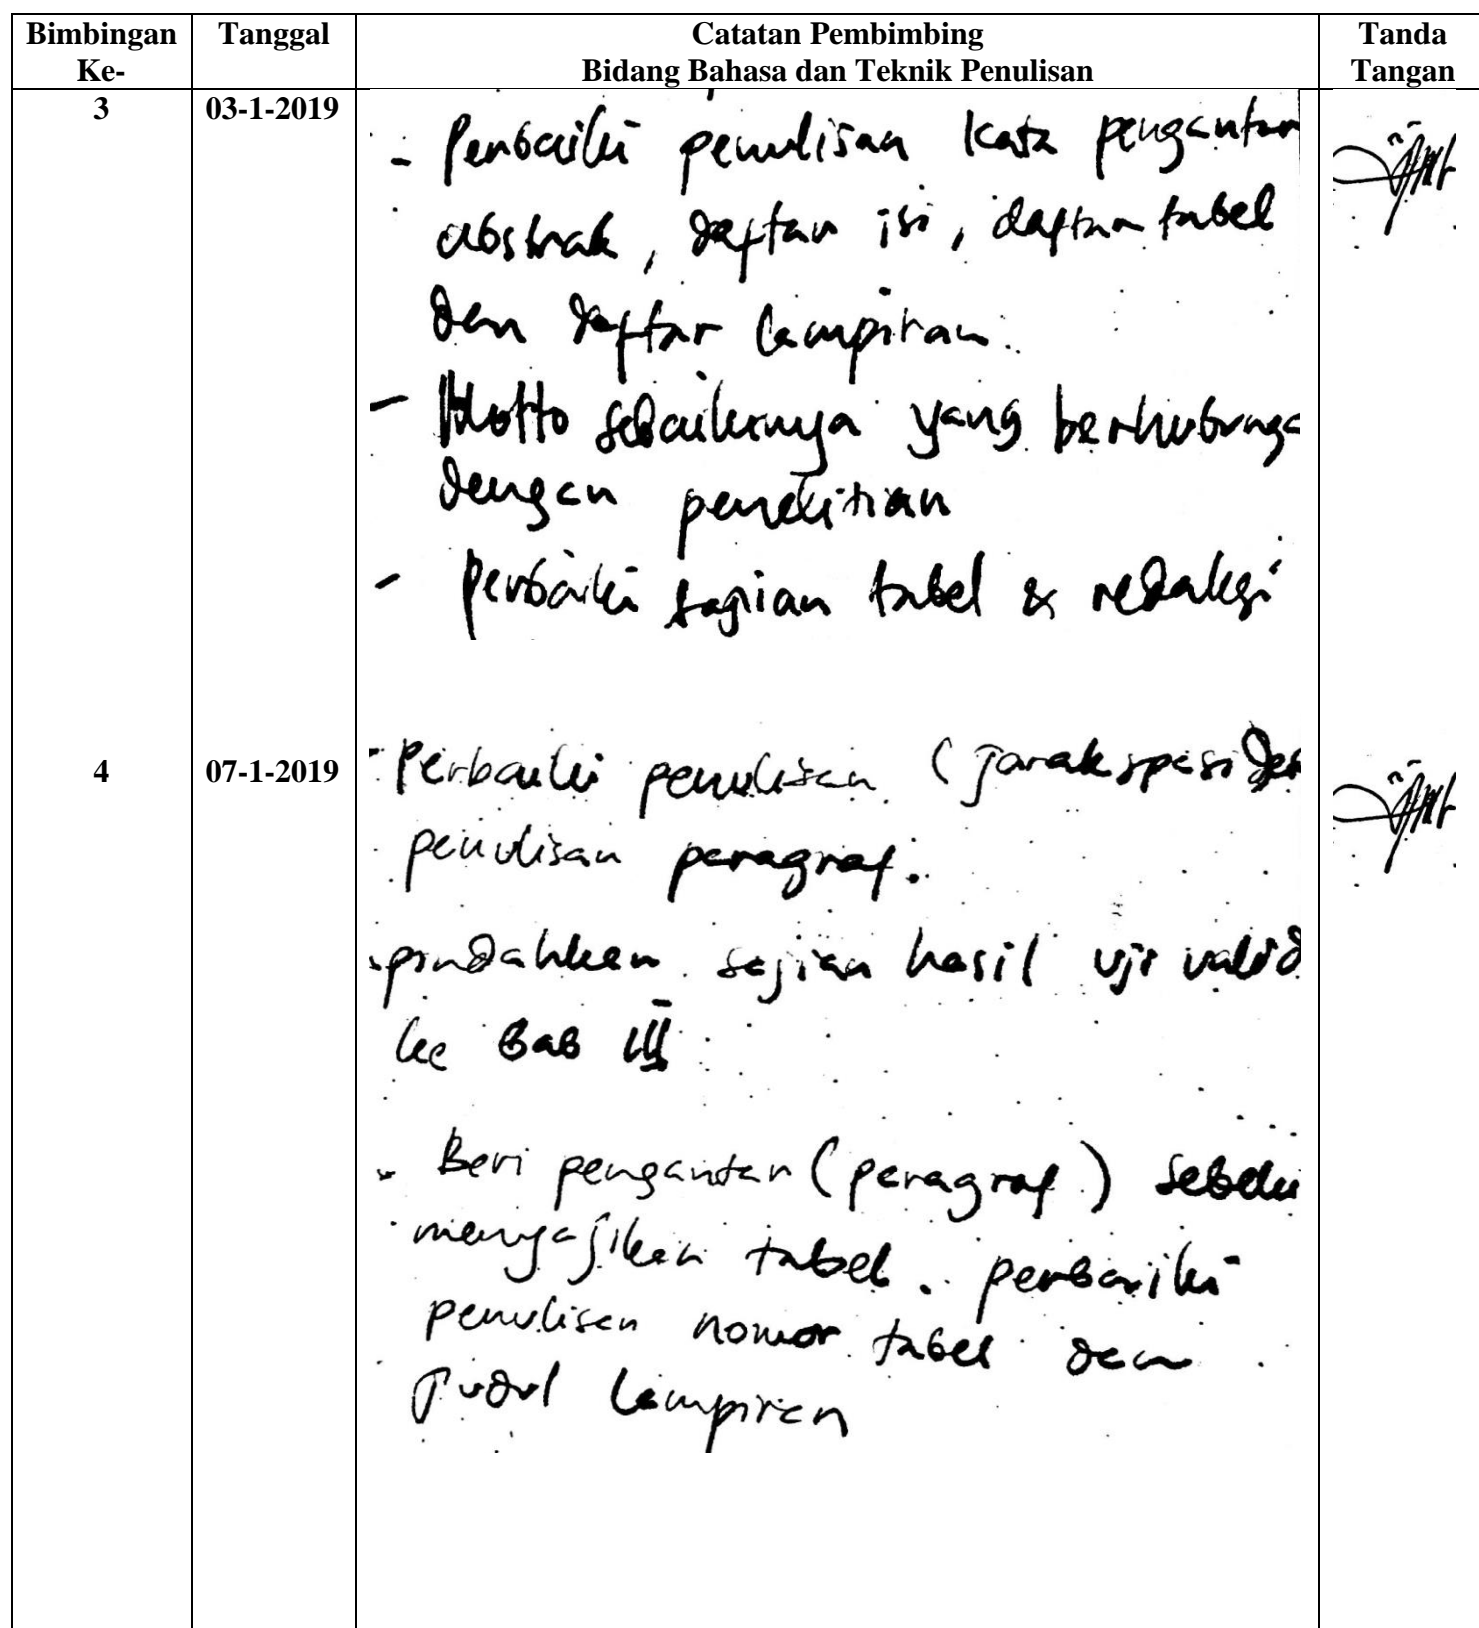 Bimbingan Ke-
Tanggal
Catatan Pembimbing
Bidang Bahasa dan Teknik Penulisan
Tanda Tangan
3
03-1-2019
- Perbaiki penulisan kata pengantar
abstrak, daftar isi, daftar tabel
dan daftar lampiran.
- Motto sebaiknya yang berhubunga
dengan penelitian
- perbaiki sajian tabel & redaksi
4
07-1-2019
- Perbaiki penulisan (jarak spasi dan
penulisan paragraf.
- pindahkan sajian hasil uji valid
ke Bab III
- Beri pengantar (paragraf) sebelu
menyajikan tabel. perbaiki
penulisan nomor tabel dan
judul lampiran